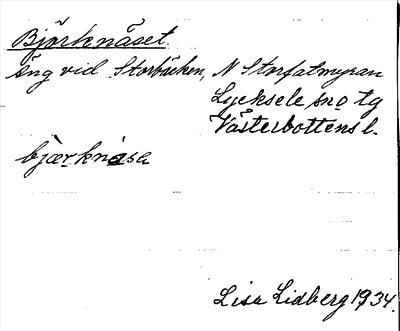 Björknäset
Äng vid Storbäcken, N Storfatmyran
Lycksele sno tg
Västerbottens l.
bjærknasa
Lisa Lidberg 1934.